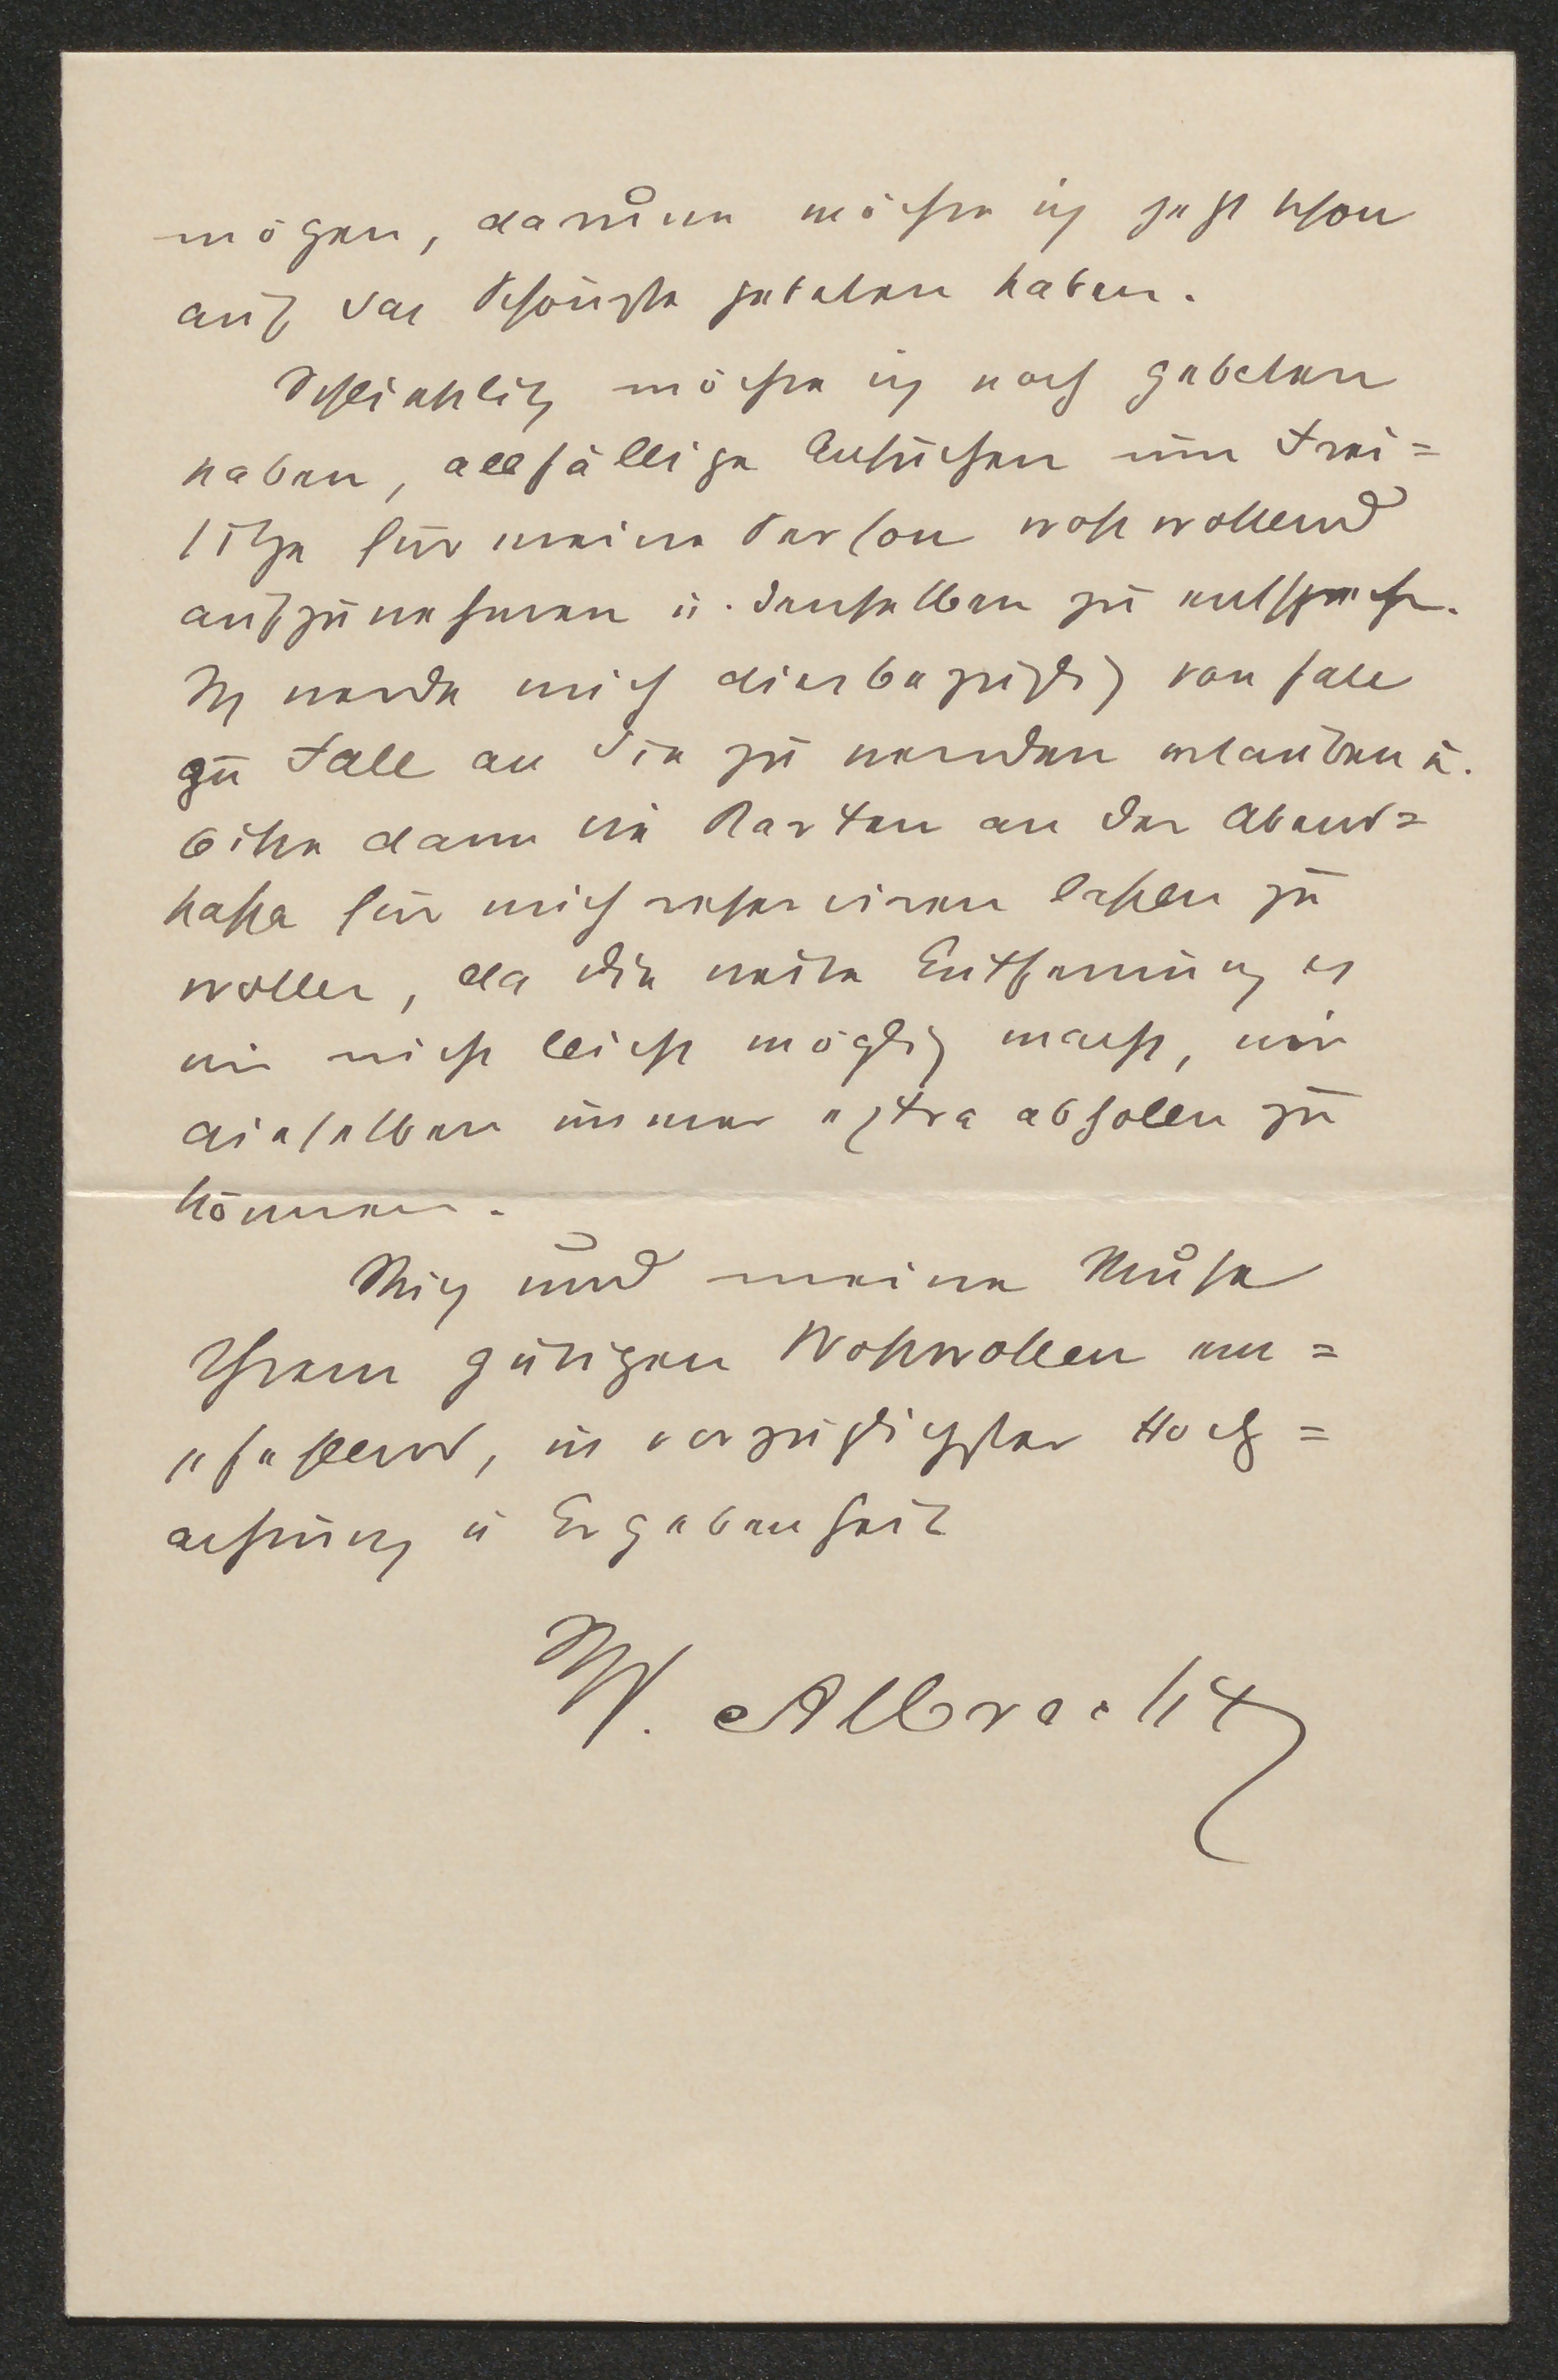 mögen, darum möchte ich jetzt schon
auf das Schönste gebeten haben.
Schließlich möchte ich noch gebeten
haben, allfällige Ansuchen um Frei=
sitze für meine Person wohlwollend
aufzunehmen u. denselben zu entsprechen.
Ich werde mich diesbezüglich von Fall
zu Fall an Sie zu wenden erlauben u.
bitte dann die Karten an der Abend=
kassa für mich reserviren lassen zu
wollen, da die weite Entfernung es
mir nicht leicht möglich macht, mir
dieselben immer extra abholen zu
können.
Mich und meine Muse
Ihrem gütigen Wohlwollen em=
pfehlend, in vorzüglichster Hoch=
achtung u Ergebenheit
M. Albrecht